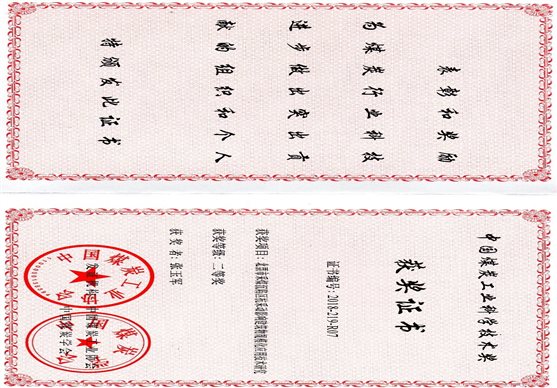 表彰和奖励
为煤炭行业科技
进步做出突出贡
献的组织和个人
特颁发此证书
中国煤炭工业科学技术奖
获奖证书
证书编号：2018-219-R07
获奖项目：
获奖等级：二等奖
获奖者：张玉军
中国煤炭工业协会
中国煤炭学会